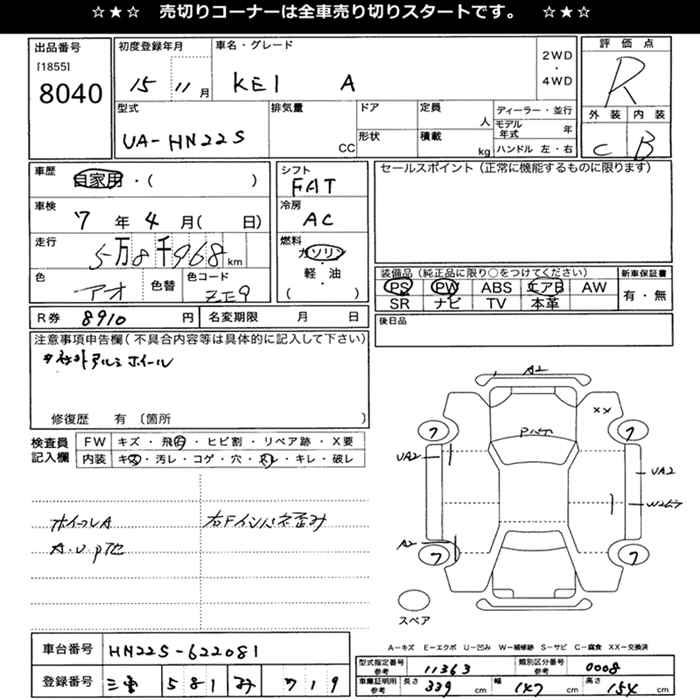 ☆★☆ 売切りコーナーは全車売り切りスタートです。 ☆★☆
出品番号
[1855]
8040
初度登録年月
15 11月
車名・グレード
KEI A
2WD
・
4WD
評価点
R
外装 内装
C B
型式
UA-HN22S
排気量
CC
ドア
形状
定員
人
積載
kg
ディーラー・並行
モデル年式 年
ハンドル 左・右
車歴
自家用・( )
車検
7年4月( 日)
走行
5万8千968km
色
アオ
色替
色コード
ZE9
シフト
FAT
冷房
AC
燃料
ガソリン
・
軽・油
( )
セールスポイント(正常に機能するものに限ります)
装備品(純正品に限り○をつけてください)
PS PW ABS エアB AW
SR ナビ TV 本革
新車保証書
有・無
後日品
R券 8910円
名変期限 月 日
注意事項申告欄(不具合内容等は具体的に記入して下さい)
社外アルミホイール
修復歴 有〔箇所
検査員
記入欄
FW キズ・飛石・ヒビ割・リペア跡・X要
内装 キズ・汚レ・コゲ・穴・スレ・キレ・破レ
ホイールA
右Fインパネ歪み
A2
XX
7
7
UA2
UA2
A2
7
7
スペア
A−キズ E−エクボ U−凹み W−補修跡 S−サビ C−腐食 XX−交換済
車台番号 HN22S-622081
登録番号 三重 581 み 719
型式指定番号
参考
11363
類別区分番号
参考
0008
車庫証明用
参考
長さ 339cm 幅 147cm 高さ 154cm